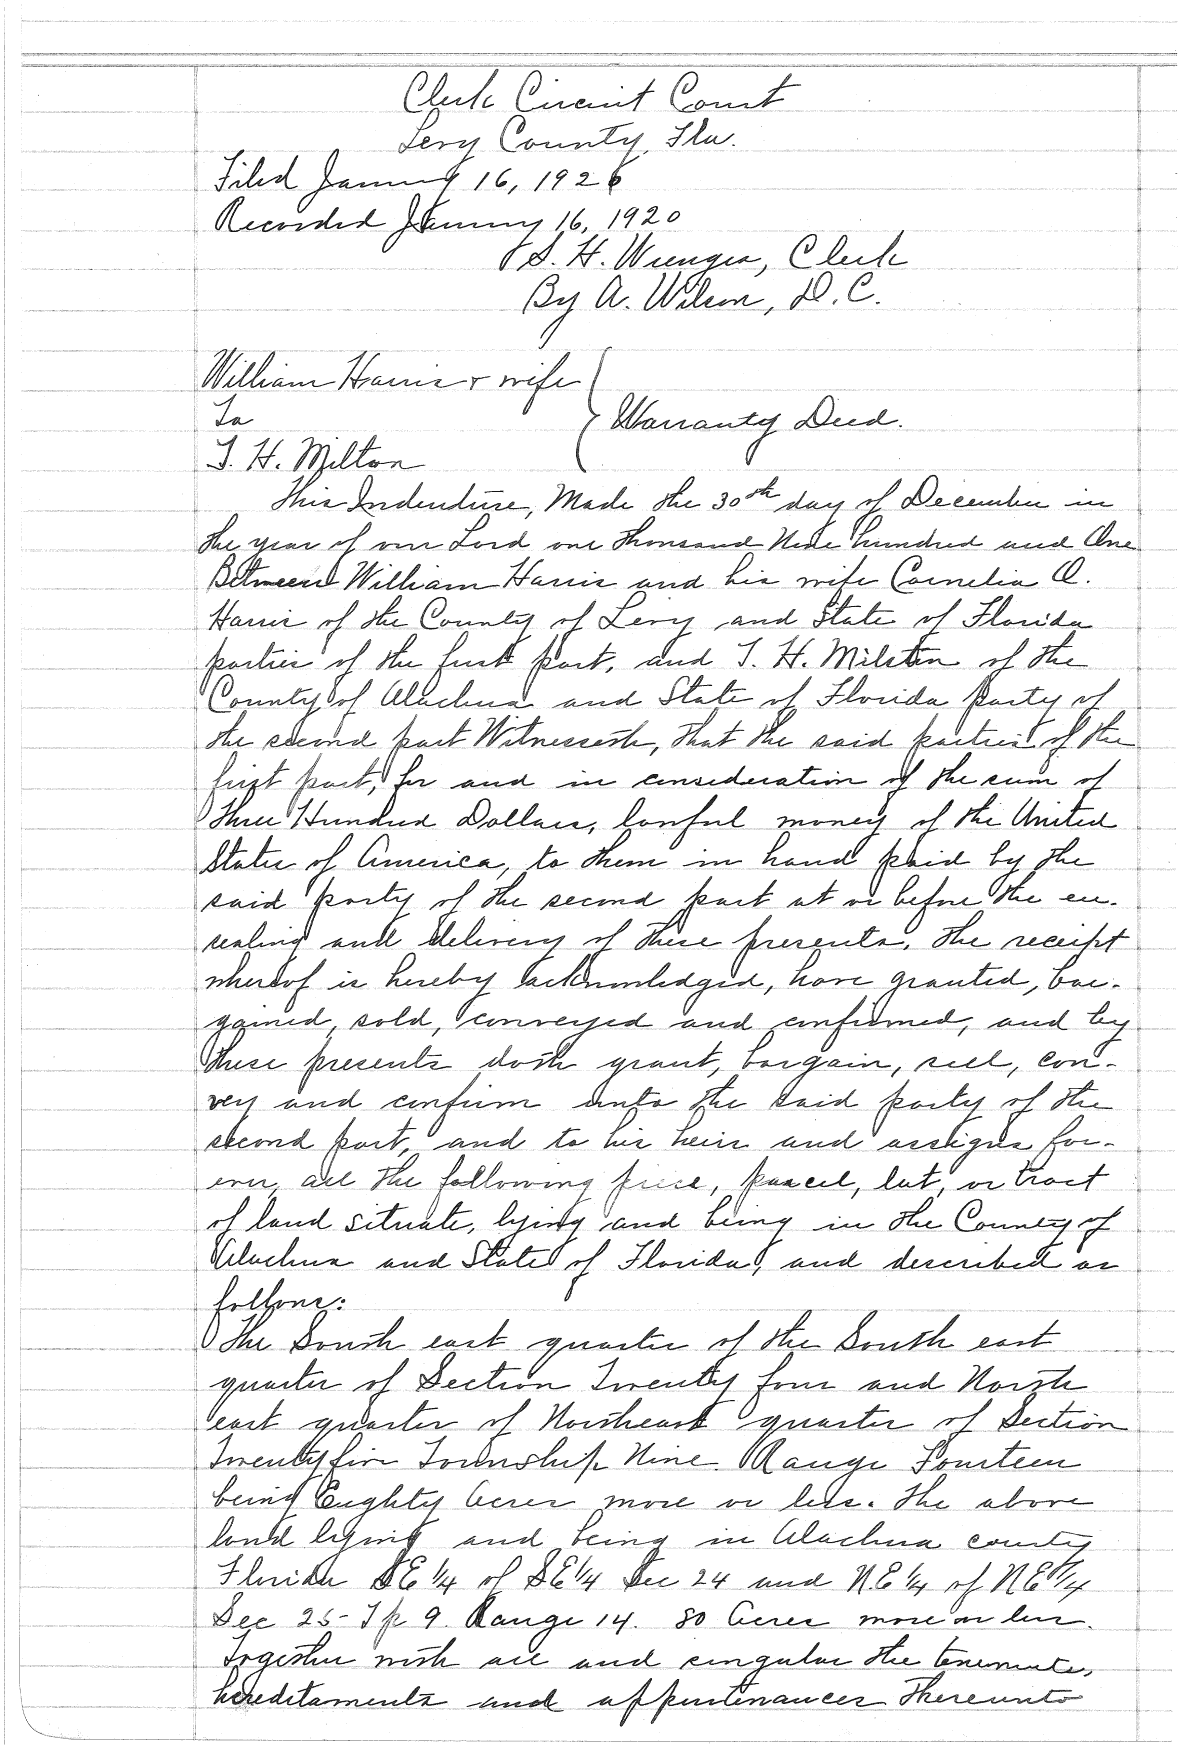 Clerk Circuit Court
Levy County, Fla.
Filed January 16, 1920
Recorded January 16, 1920
S. H. Wienges, Clerk
By A. Wilson, D. C.
William Harris & wife
To
Warranty Deed.
T. H. Milton
This Indenture, Made the 30th day of December in
the year of our Lord one thousand Nine hundred and One
Between William Harris and his wife Cornelia A.
Harris of the County of Levy and State of Florida
parties of the first part, and T. H. Milton of the
County of Alachua and State of Florida party of
the second part Witnesseth, that the said parties of the
first part, for and in consideration of the sum of
three Hundred Dollars, lawful money of the United
States of America, to them in hand paid by the
said party of the second part at or before the en-
sealing and delivery of these presents, the receipt
whereof is hereby acknowledged, have granted, bar-
gained, sold, conveyed and confirmed, and by
these presents doth grant, bargain, sell, con-
vey and confirm unto the said party of the
second part, and to his heirs and assigns for-
ever, all the following piece, parcel, lot, or tract
of land situate, lying and being in the County of
Alachua and State of Florida, and described as
follows:
The South east quarter of the South east
quarter of Section Twenty four and North
east quarter of Northeast quarter of Section
Twenty five Township Nine Range Fourteen
being Eighty Acres more or less. The above
land lying and being in Alachua county
Florida SE 1/4 of SE 1/4 Sec 24 and N.E 1/4 of N.E 1/4
Sec 25- Tp 9. Range 14. 80 Acres more or less.
Together with all and singular the tenements,
hereditaments and appurtenances thereunto